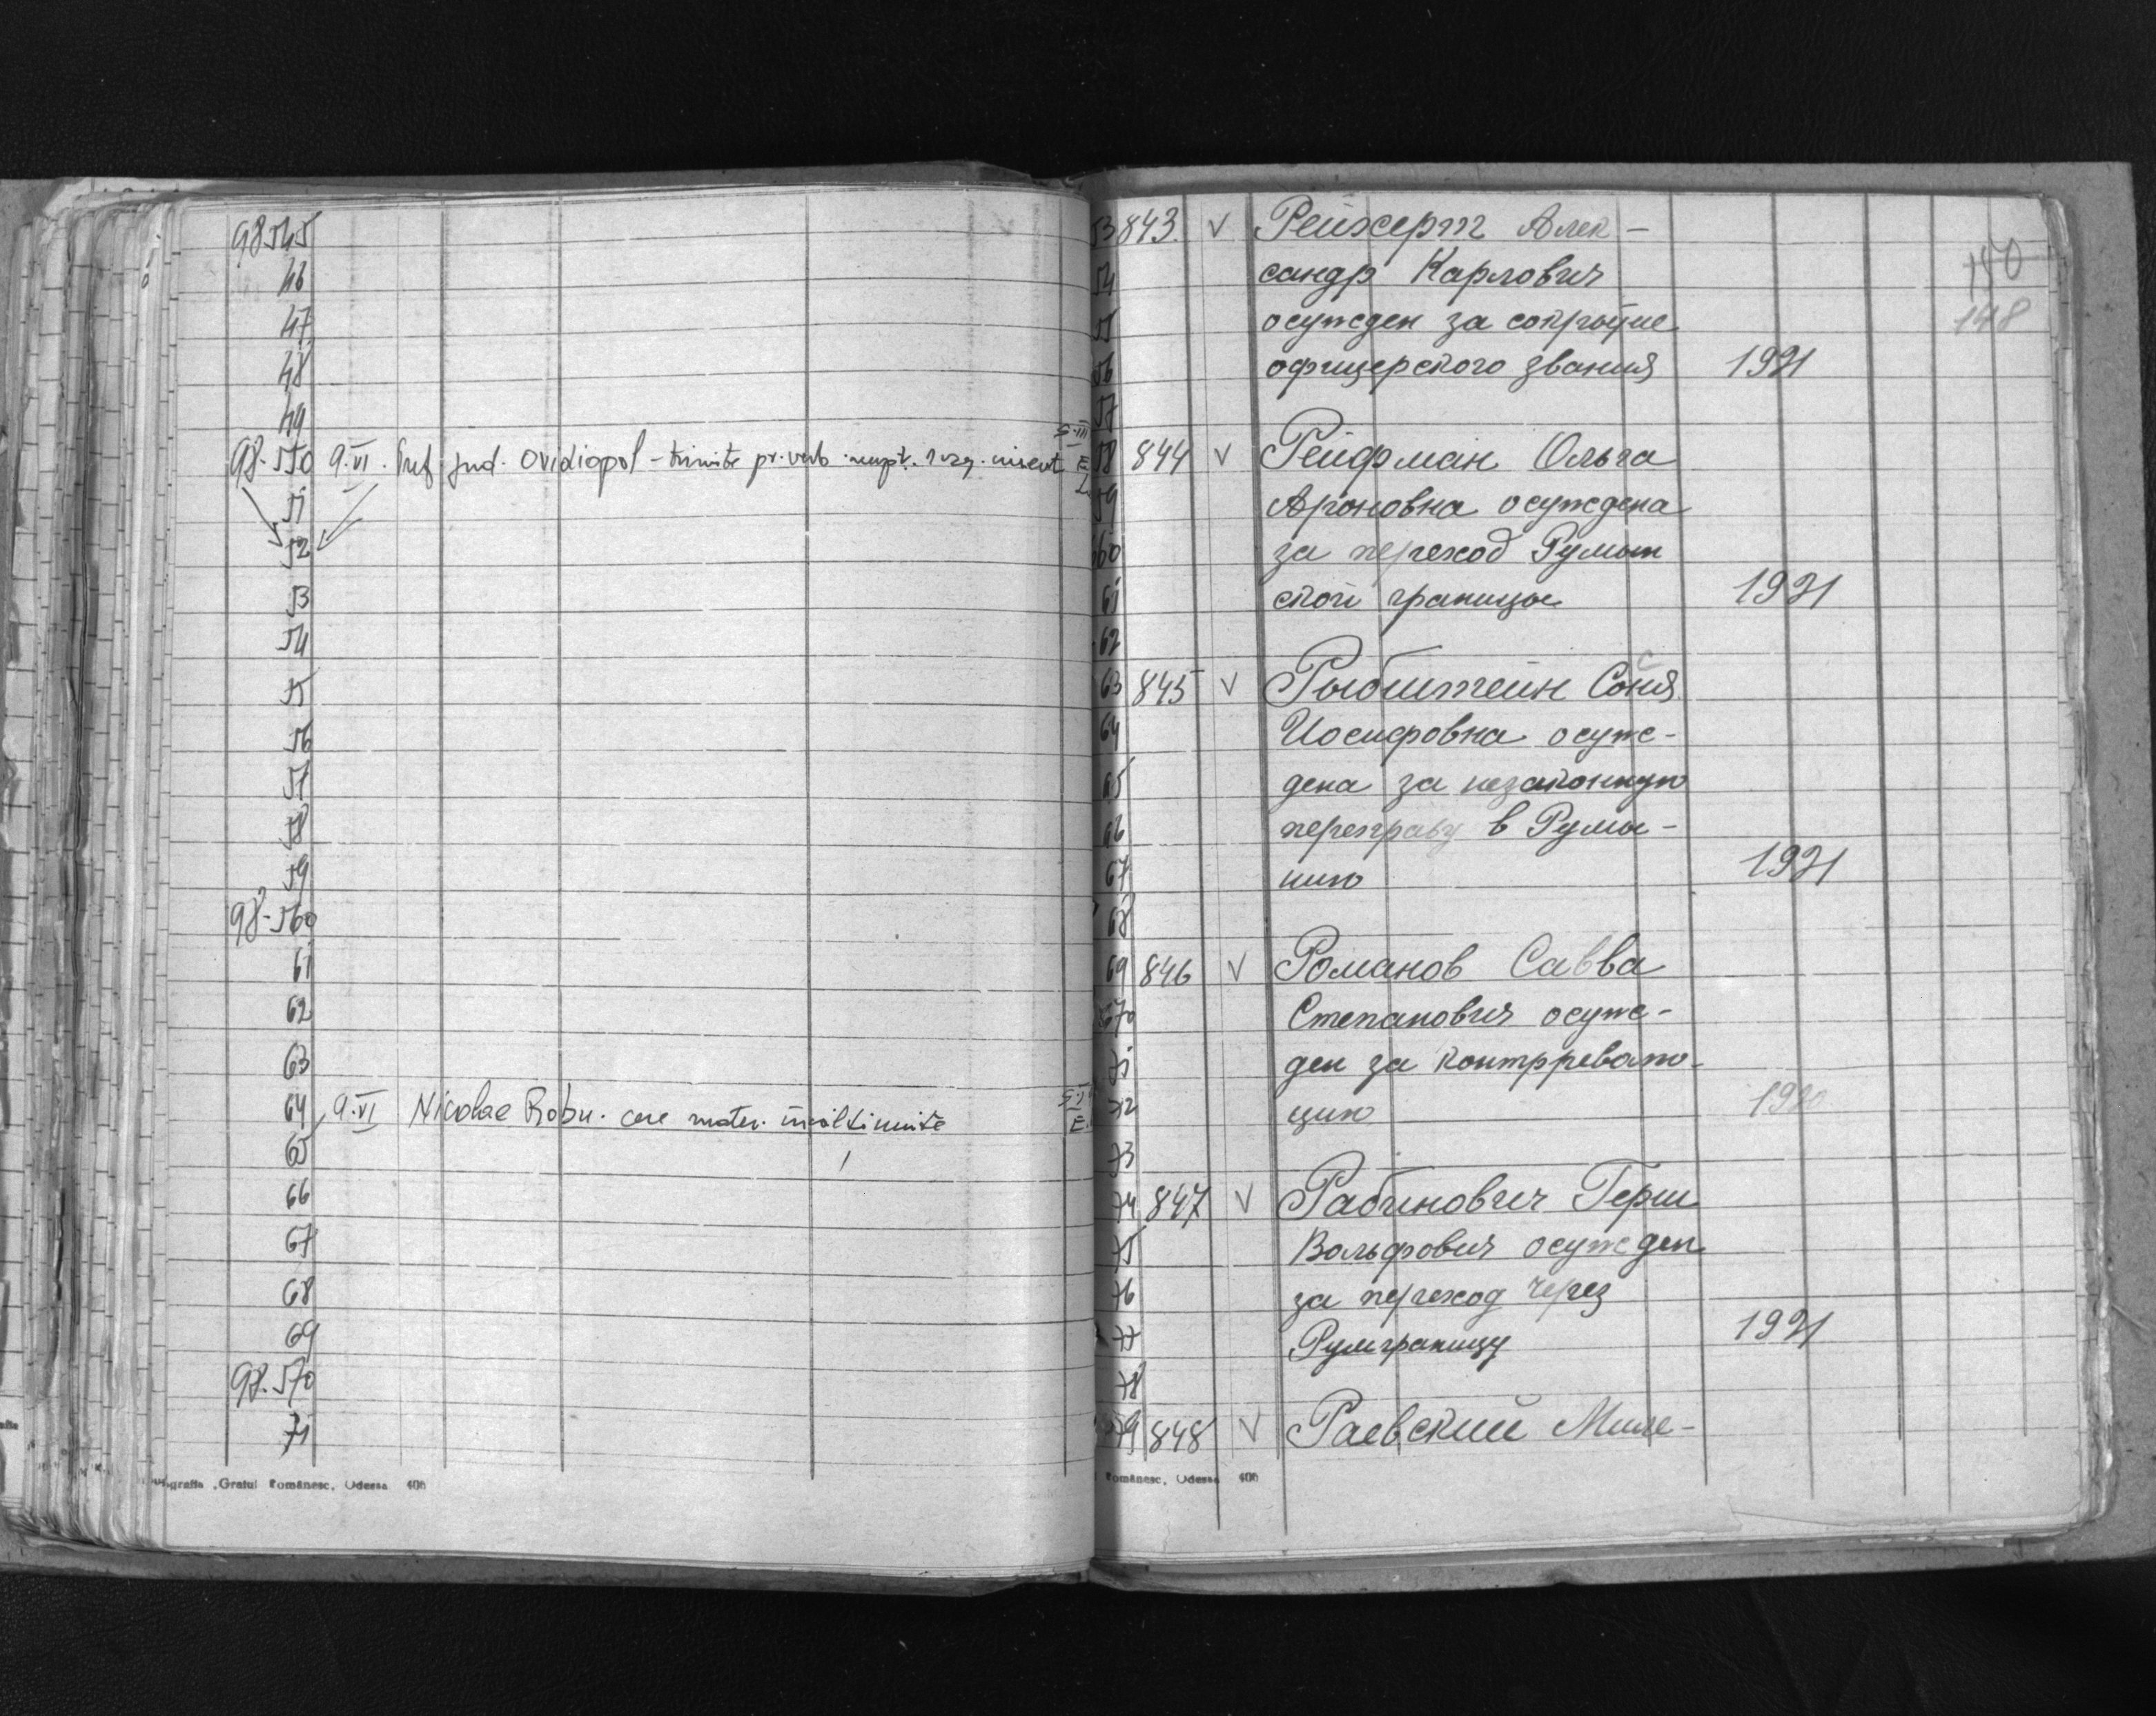 98545
46
47
48
49
98-550 9.VI. Pref. jud. Ovidiopol - trimite pr. verb.
51
52
53
54
55
56
57
58
59
98-560
61
62
63
64 9.VI Nicolae Robu. cere mater.
65
66
67
68
69
98.570
71
Tipografia „Graiul Românesc, Odessa 406
150
148
53 843. V Рейхерт Алек-
54 сандр Карлович
55 осужден за сокрытие
56 офицерского звания 1921
57
58 844 V Рейфман Ольга
59 Ароновна осуждена
560 за переход Румын
61 ской границы 1921
62
63 845 V Рыбштейн Соня
64 Иосифовна осуж-
65 дена за незаконную
66 переправу в Румы-
67 нию 1921
68
69 846 V Романов Савва
570 Степанович осуж-
71 ден за контрреволю-
72 цию 1920
73
74 847 V Рабинович Герш
75 Вольфович осужден
76 за переход через
77 Румграницу 1921
78
79 848 V Раевский Мише-
Românesc, Odessa 406